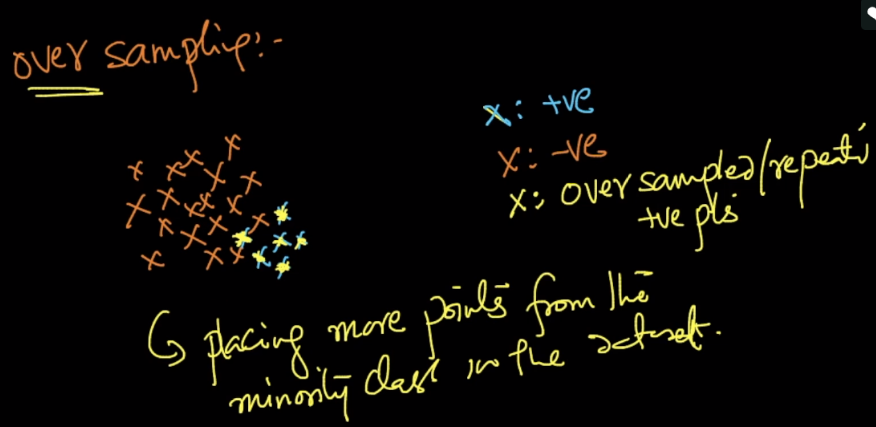 over sampling:-
x: +ve
x: -ve
x: over sampled/repeati
+ve pts
↳ placing more points from the
minority class in the dataset.